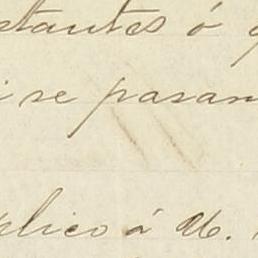 stantes ó
i se pasan
plico á U.